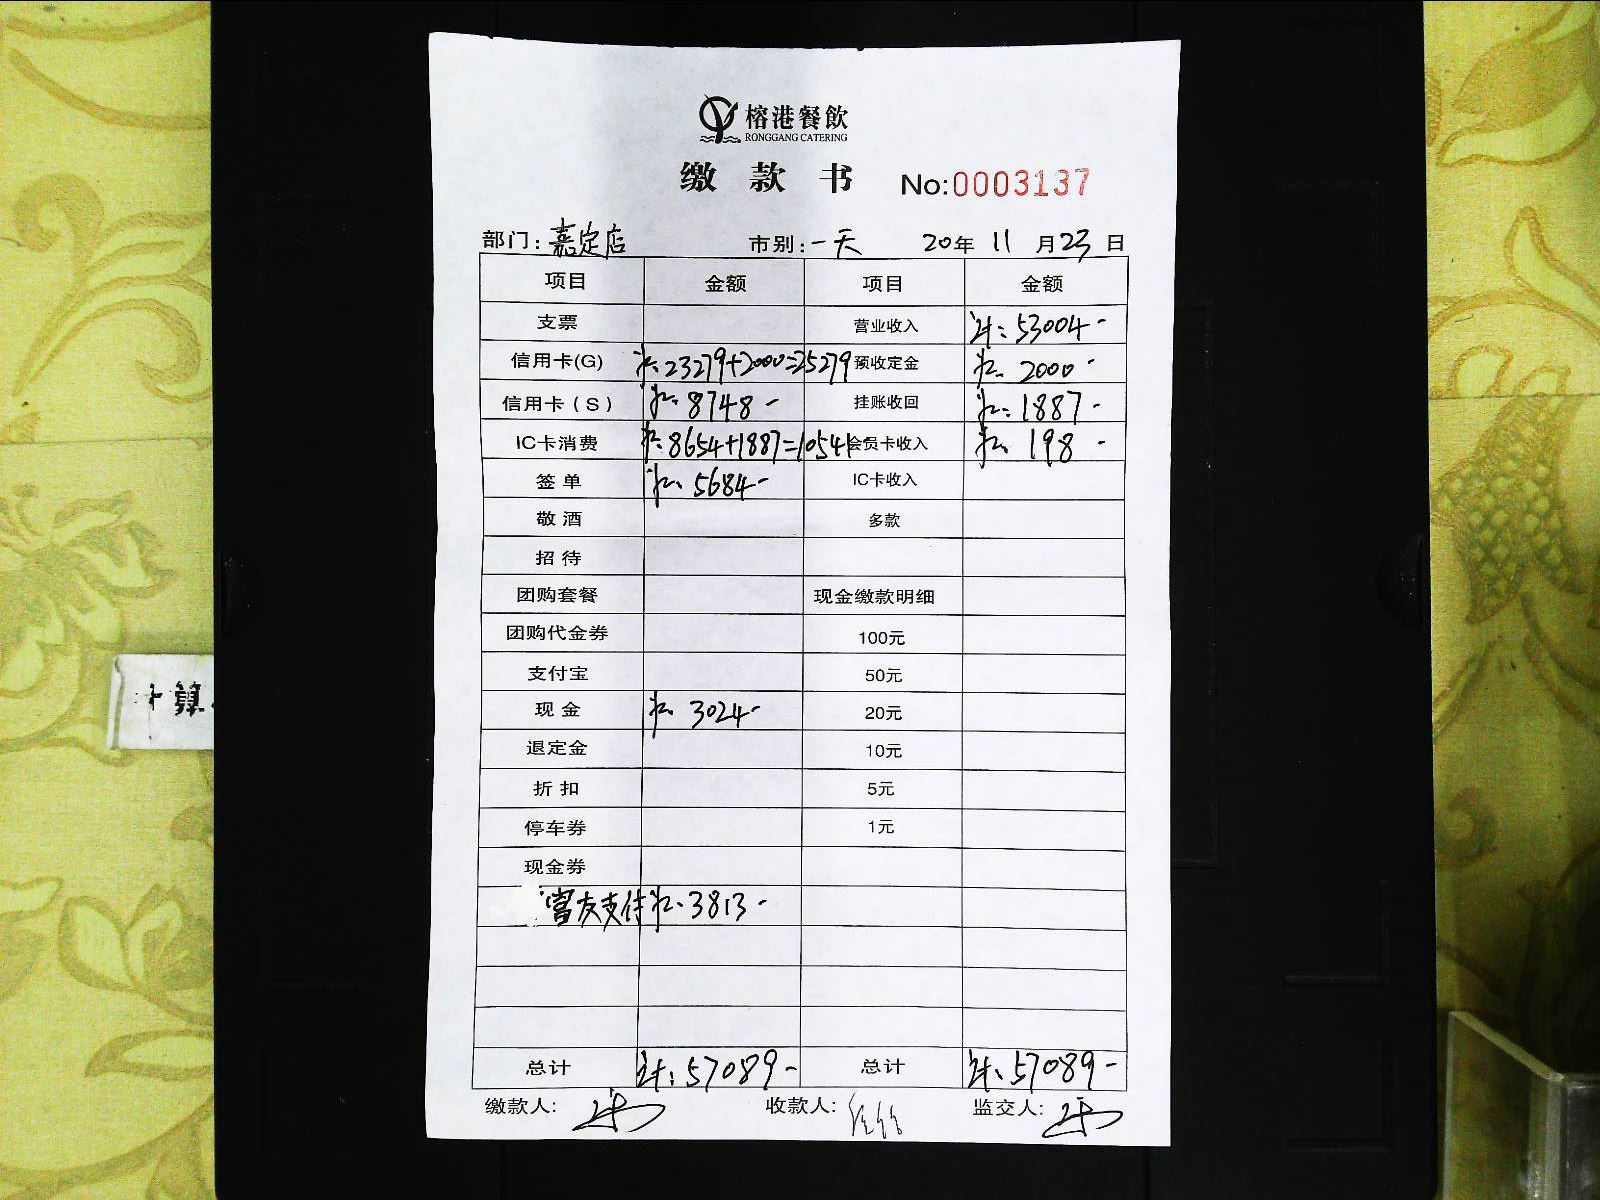 榕港餐飲
RONGGANG CATERING
缴款书 No:0003137
部门:嘉定店 市别:一天 20年 11月23日
项目 金额 项目 金额
支票 营业收入 计:53004-
信用卡(G) 23279+2000=25279 预收定金 2000-
信用卡(S) 8748- 挂账收回 1887-
IC卡消费 8654+1887=10541 会员卡收入 198-
签单 5684- IC卡收入
敬酒 多款
招待
团购套餐 现金缴款明细
团购代金券 100元
支付宝 50元
现金 3024- 20元
退定金 10元
折扣 5元
停车券 1元
现金券
富友支付 3813-
总计 计:57089- 总计 计:57089-
缴款人: 收款人: 监交人: